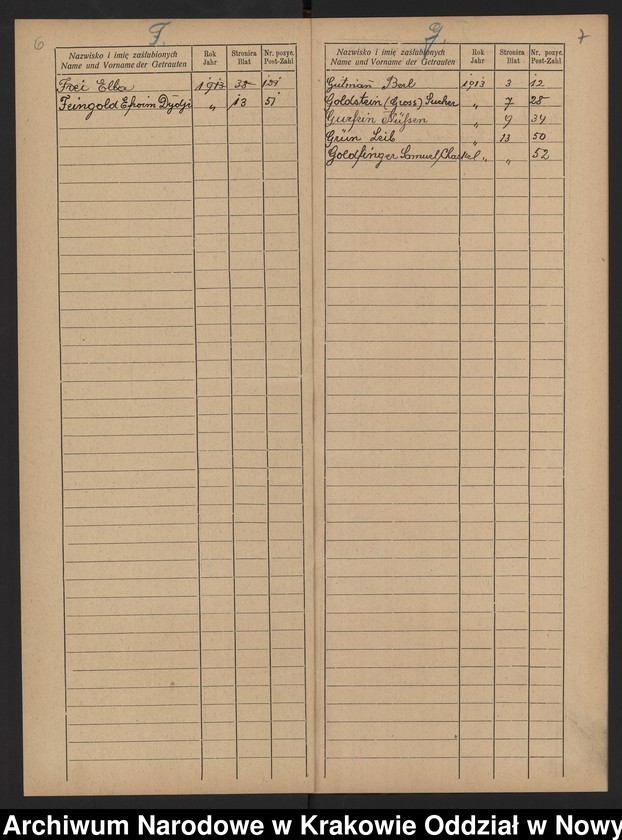 6
F.
Nazwisko i imię zaślubionych
Name und Vorname der Getrauten
Rok
Jahr
Stronica
Blat
Nr. pozyc.
Post-Zahl
Frei Elba 1913 38
Feingold Efroim " 13 51
7
G.
Nazwisko i imię zaślubionych
Name und Vorname der Getrauten
Rok
Jahr
Stronica
Blat
Nr. pozyc.
Post-Zahl
Gutman Berl 1913 3 12
Goldstein (Gross) Sucher " 7 28
Gurfein " 9 34
Grün Leib " 13 50
Goldfinger Samuel Chaskel " " 52
Archiwum Narodowe w Krakowie Oddział w Nowy